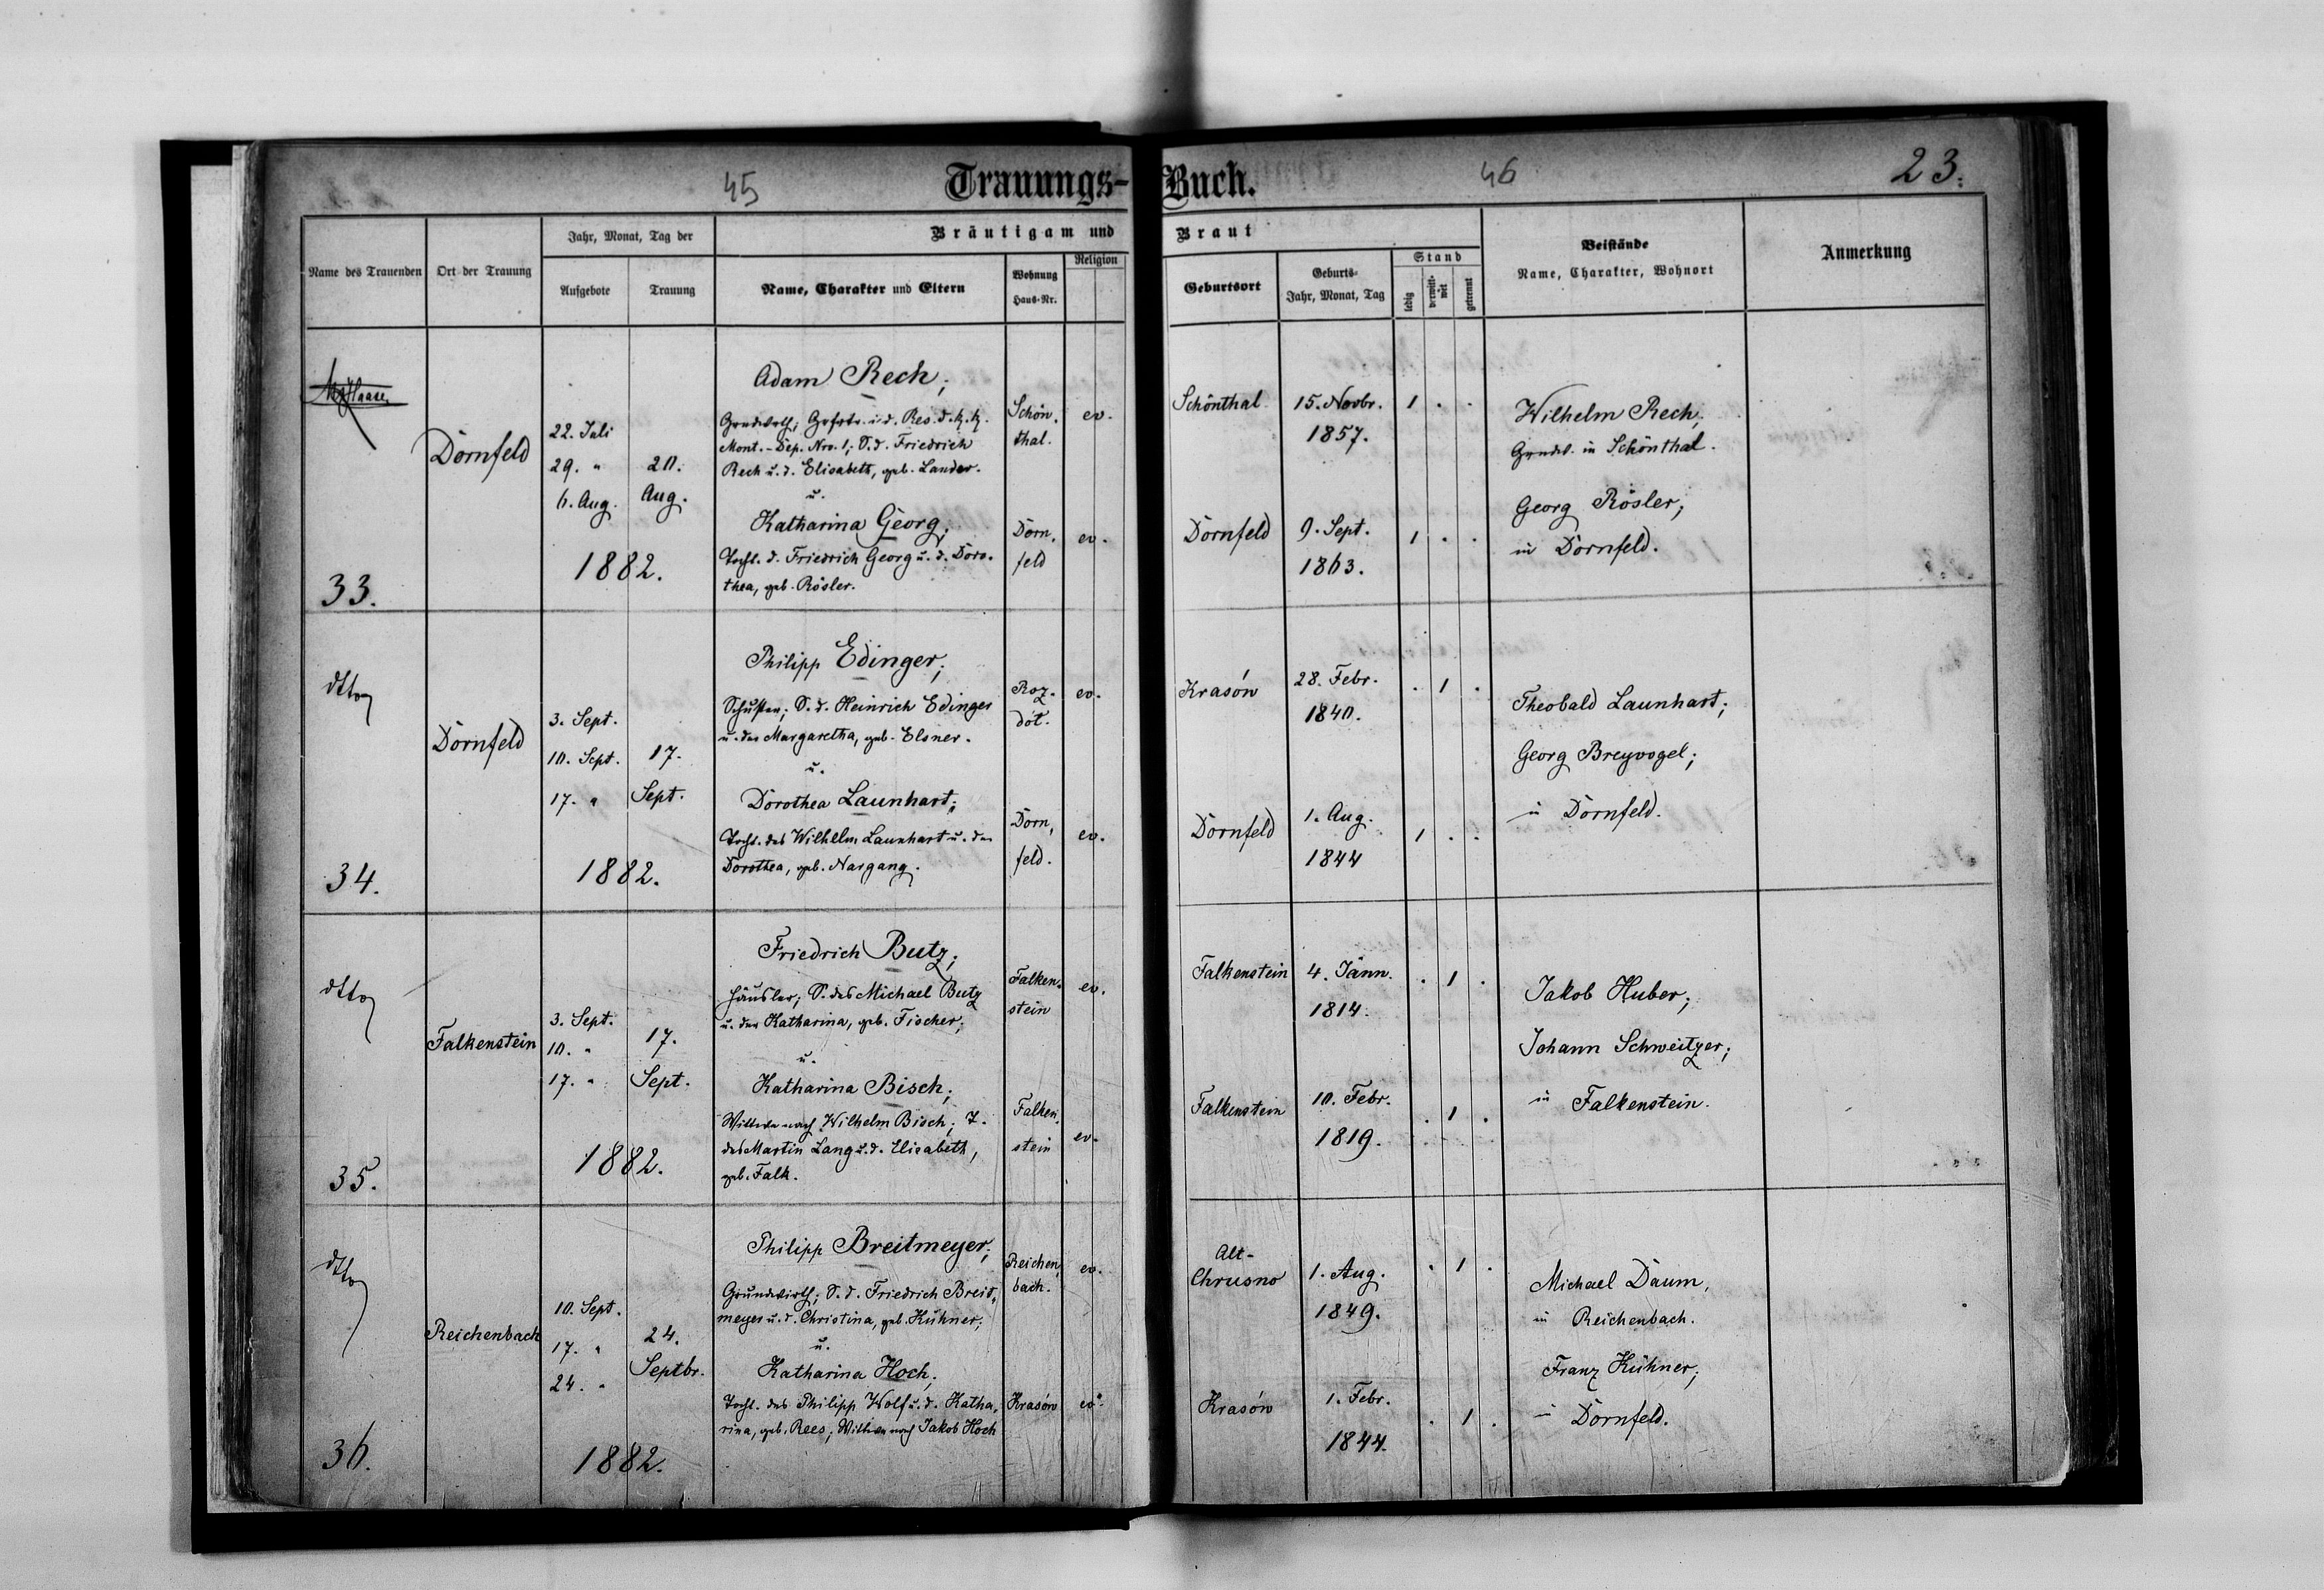 45
Trauungs-Buch.
46
23.
Name des Trauenden
Ort der Trauung
Jahr, Monat, Tag der
Aufgebote
Trauung
Bräutigam und Braut
Name, Charakter und Eltern
Wohnung
Haus-Nr.
Religion
Geburtsort
Geburts-
Jahr, Monat, Tag
Stand
ledig
verwit-
wet
getrennt
Beistände
Name, Charakter, Wohnort
Anmerkung
33.
Dornfeld
22. Juli
29. "
6. Aug.
20.
Aug.
1882.
Adam Rech;
Grndwrth; Gefrtr. i. d. Res. d. k. k.
Mont.-Dep. Nro. 1; S. d. Friedrich
Rech u. d. Elisabeth, geb. Lander.
u.
Katharina Georg,
Tocht. d. Friedrich Georg u. d. Doro-
thea, geb. Rösler.
Schön-
thal.
ev.
Dorn-
feld
ev.
Schönthal
15. Novbr.
1857.
1 . .
Dornfeld
9. Sept.
1863.
1 . .
Wilhelm Rech;
Grndw. in Schönthal.
Georg Rösler;
in Dornfeld.
dtto
34.
Dornfeld
3. Sept.
10. Sept.
17. "
17.
Sept.
1882.
Philipp Edinger;
Schuster; S. d. Heinrich Edinger
u. der Margaretha, geb. Elsner.
u.
Dorothea Launhart;
Tocht. des Wilhelm Launhart u. der
Dorothea, geb. Nargang.
Roz-
dół.
ev.
Dorn-
feld.
ev.
Krasów
28. Febr.
1840.
. 1 .
Dornfeld
1. Aug.
1844
1 . .
Theobald Launhart;
Georg Breyvogel;
in Dornfeld.
dtto
35.
Falkenstein
3. Sept.
10. "
17. "
17.
Sept.
1882.
Friedrich Butz;
Häusler; S. des Michael Butz
u. der Katharina, geb. Fischer;
u.
Katharina Bisch;
Wittwe nach Wilhelm Bisch; T.
des Martin Lang u. d. Elisabeth,
geb. Falk.
Falken-
stein
ev.
Falken-
stein
ev.
Falkenstein
4. Jänn.
1814.
. 1 .
Falkenstein
10. Febr.
1819.
. 1 .
Jakob Huber;
Johann Schweitzer;
in Falkenstein.
dtto
36.
Reichenbach
10. Sept.
17. "
24. "
24.
Septbr.
1882.
Philipp Breitmeyer;
Grundwirth; S. d. Friedrich Breit-
meyer u. d. Christina, geb. Kühner;
u.
Katharina Hoch;
Tocht. des Philipp Wolf u. d. Katha-
rina, geb. Rees; Wittwe nach Jakob Hoch
Reichen-
bach.
ev.
Krasów
ev.
Alt-
Chrusno
1. Aug.
1849.
. 1 .
Krasów
1. Febr.
1844.
. 1 .
Michael Daum,
in Reichenbach.
Franz Kühner;
in Dornfeld.